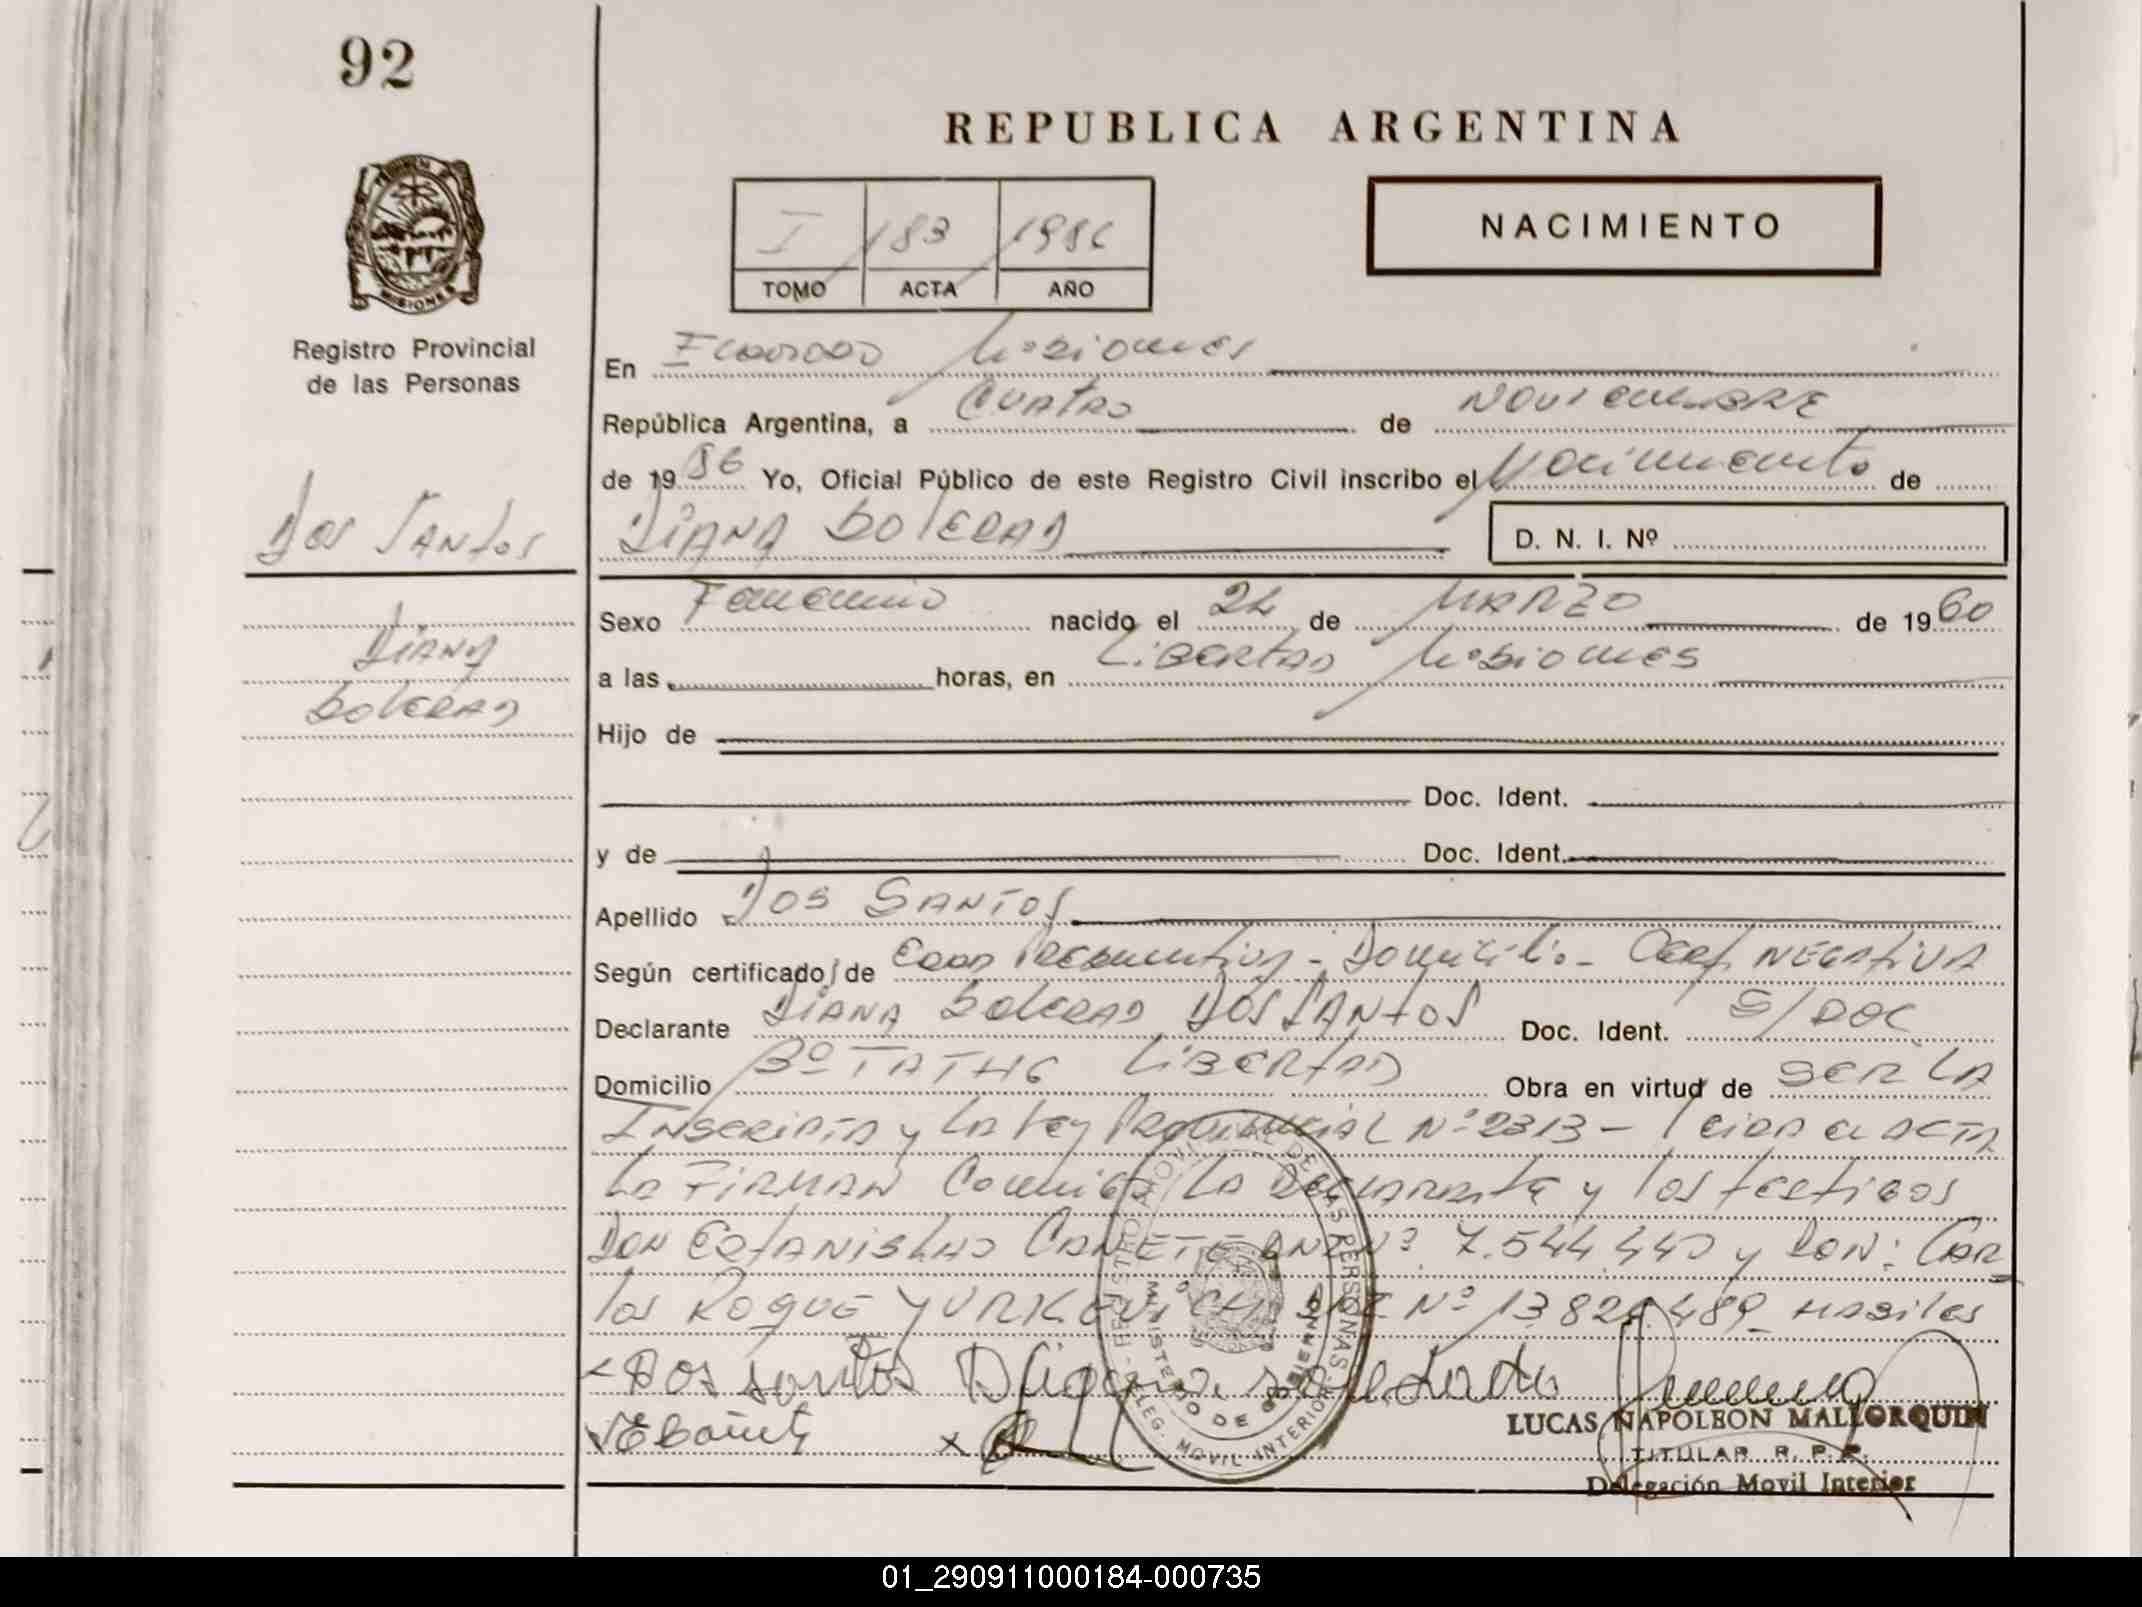 92
REPUBLICA ARGENTINA
I 183 1986
TOMO ACTA AÑO
NACIMIENTO
MISIONES
Registro Provincial
de las Personas
En Eldorado Misiones
República Argentina, a CUATRO de NOVIEMBRE
de 1986 Yo, Oficial Público de este Registro Civil inscribo el Nacimiento de
DIANA SOLEDAD
D. N. I. Nº
Dos SANtos
DIANA
SOLEDAD
Sexo Femenino nacido el 24 de MARZO de 1960
a las horas, en LiBERtAD Misiones
Hijo de
Doc. Ident.
y de Doc. Ident.
Apellido DOS SANTOS
Según certificado de EDAD Presuntiva - Domicilio - Cert NEGAtiVA
Declarante DIANA SOLEDAD DOS SANtOS Doc. Ident. S/DOC
Domicilio Bº LiBERtAD Obra en virtud de SER LA
INSCRIPTA y LA Ley PROViNCIAL Nº 2313 - leida el ACTA
La FIRMAN Conmigo LA DECLARANte y los testigos
DON EstANISLAO CAÑETE DNI Nº 7.544.440 y DON: CAR
los ROQUE YURKOVICH DNI Nº 13.829.489 HABiles
Dos santos Diana soledad
E Cañete
REGISTRO PROVINCIAL DE LAS PERSONAS
MINISTERIO DE GOBIERNO
DELEG. MOVIL INTERIOR
LUCAS NAPOLEON MALLORQUIN
TITULAR R. P. P.
Delegación Movil Interior
01_290911000184-000735